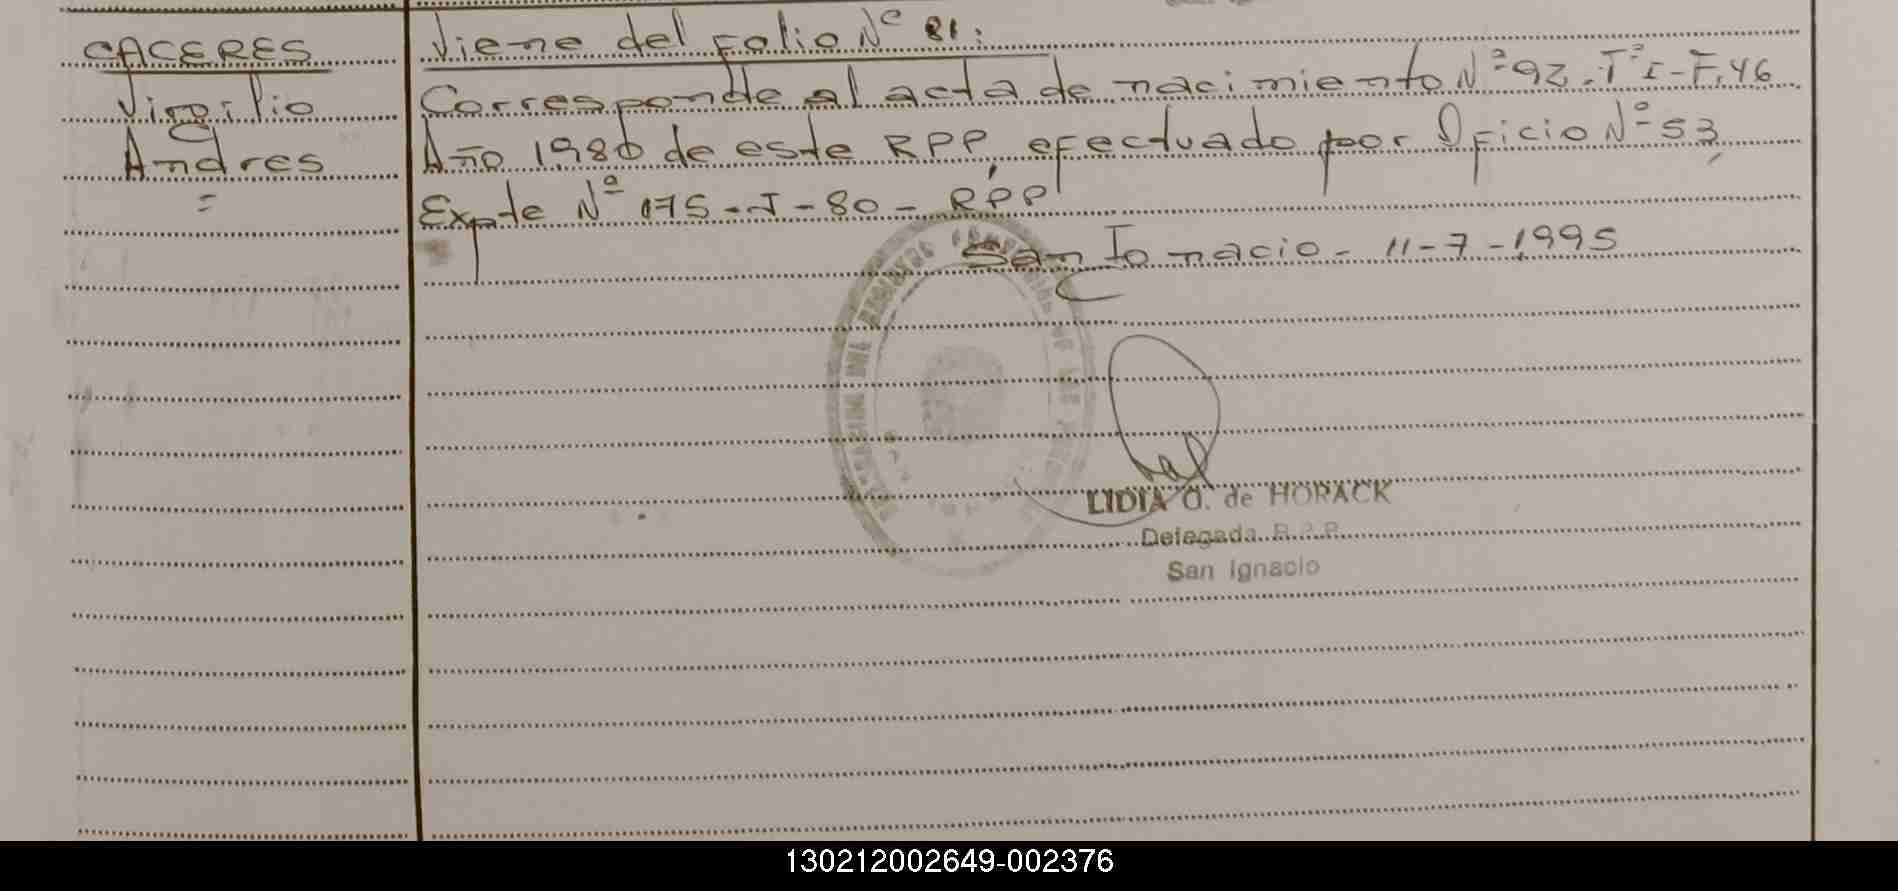 CACERES
Virgilio
Andres
=
Viene del Folio Nº 81:
Corresponde al acta de nacimiento Nº 92-Tº I-F.46
Año 1980 de este RPP, efectuado por Oficio Nº 53,
Expte Nº 175-J-80-RPP
San Ignacio - 11-7-1995
LIDIA O. de HORACK
Delegada R.P.P.
San Ignacio
130212002649-002376